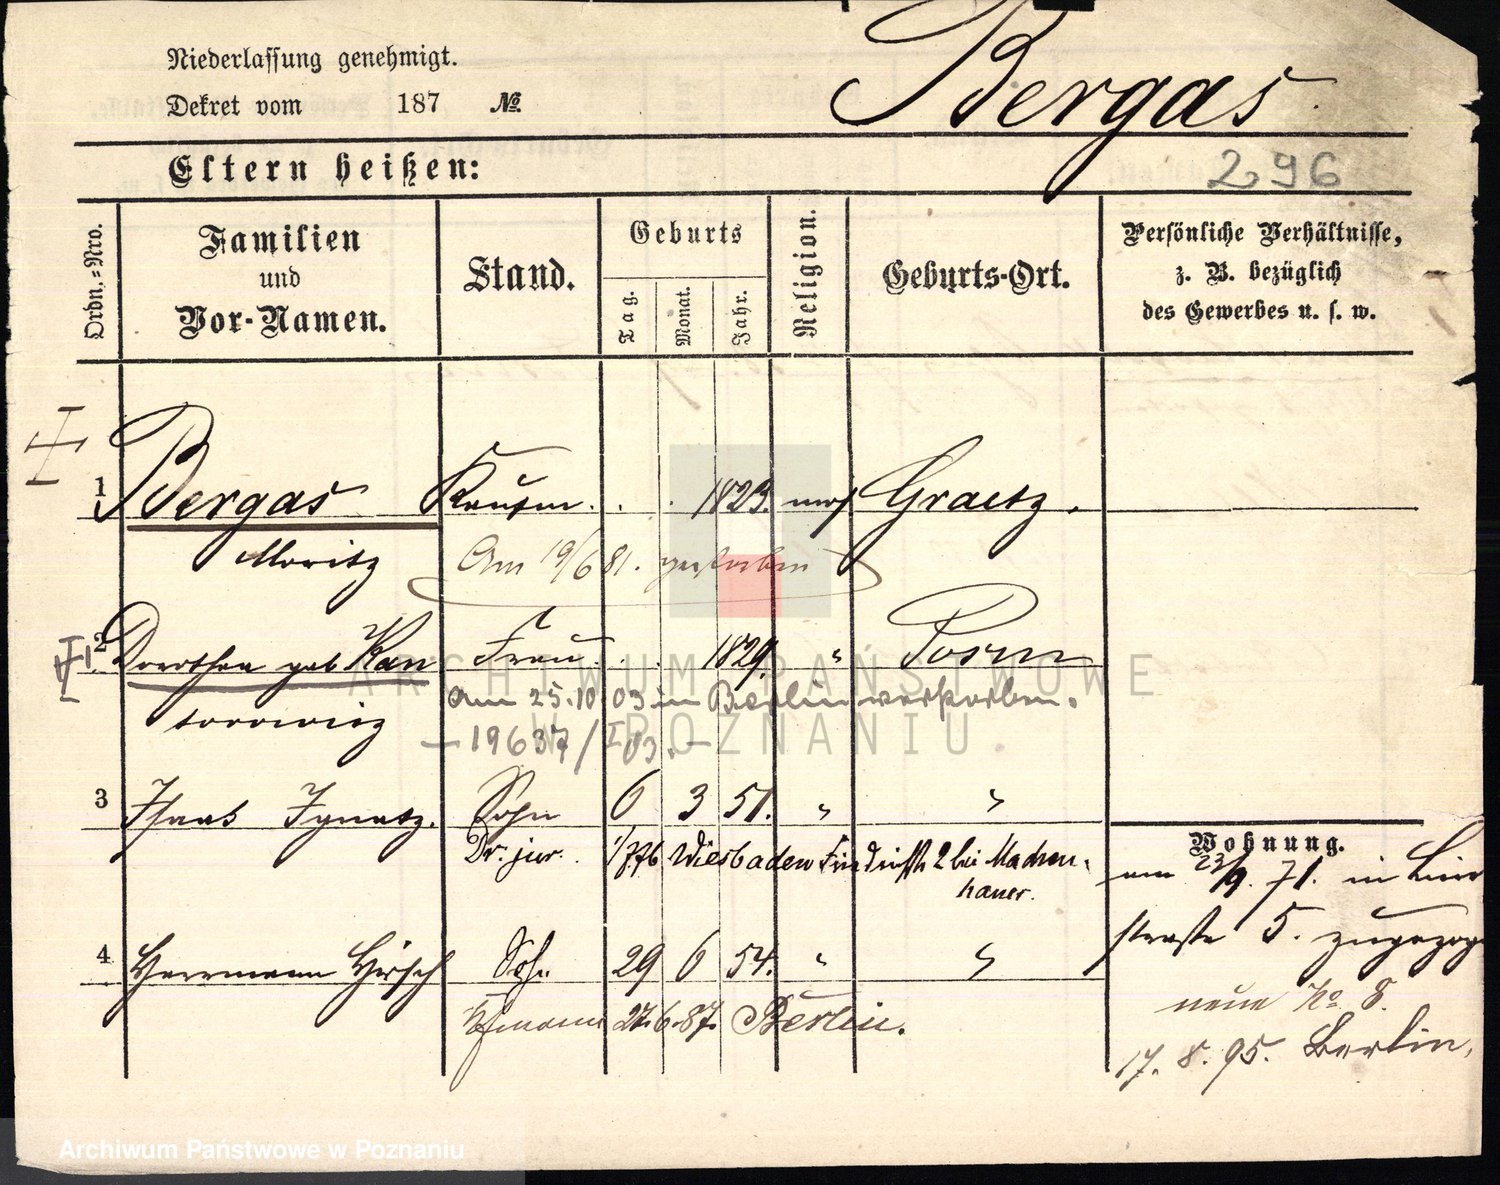 Niederlassung genehmigt.
Dekret vom 187 №
Bergas
Eltern heißen:
296
Ordn.-Nro.
Familien
und
Vor-Namen.
Stand.
Geburts
Tag.
Monat.
Jahr.
Religion.
Geburts-Ort.
Persönliche Verhältnisse,
z. B. bezüglich
des Gewerbes u. s. w.
1 Bergas Kaufm. . . 1823. mos Graetz.
Moritz
Am 19/6 81. gestorben
2 Dorothea geb Kan Frau . . 1829. " Posen
torowicz
Am 25.10 03 in Berlin verstorben.
– 19637/I 03. –
3 Isaak Ignatz. Sohn 6 3 51. " "
Dr. jur. 1/7 76 Wiesbaden Friedrichstr 2 bei Machen-
hauer.
4 Herrmann Hirsch Sohn 29 6 54. " "
Kfmann 27.6.87. Berlin.
Wohnung.
am 23/9. 71. in
straße 5. zugezog
neue No 8.
17. 8. 95. Berlin,
ARCHIWUM PAŃSTWOWE
W POZNANIU
Archiwum Państwowe w Poznaniu